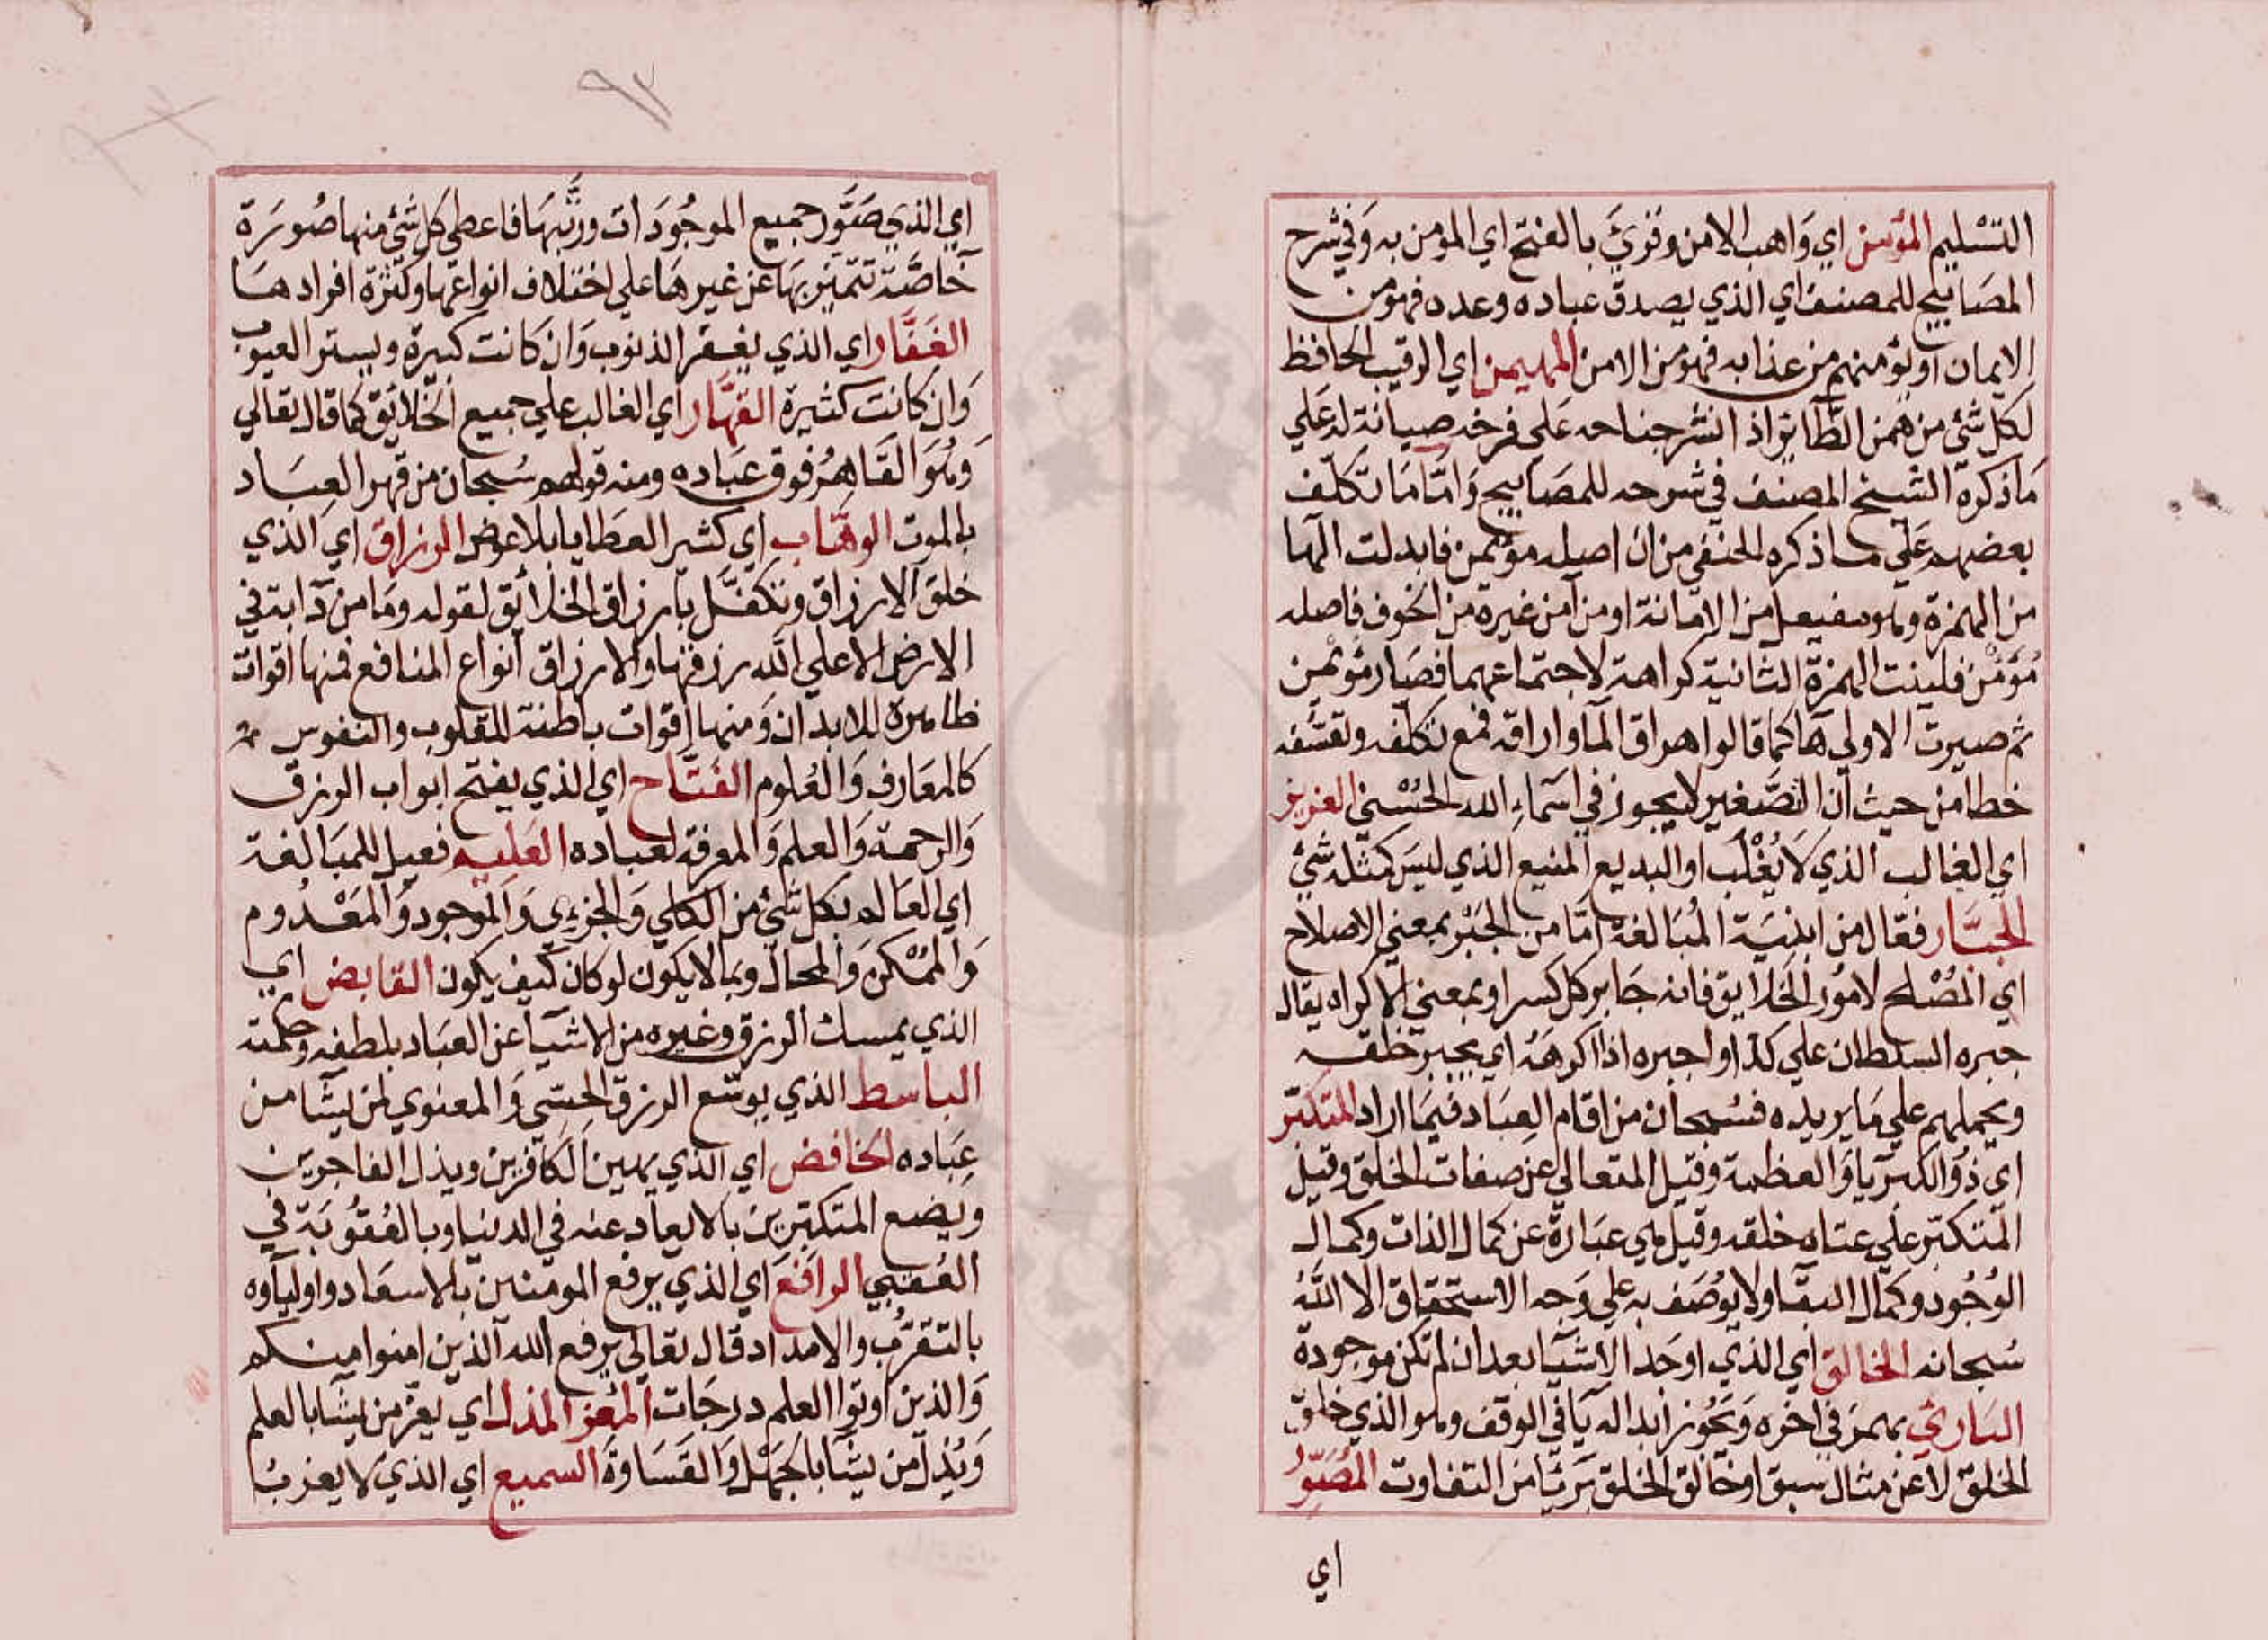 التسليم المؤمن اي واهب الامن وقرئ بالفتح اي المومن به وفي شرح
المصابيح للمصنف اي الذي يصدق عباده وعده فهو من
الايمان او يؤمنهم من عذابه فهو من الامن المهيمن اي الرقيب الحافظ
لكل شئ من همن الطائر اذا نشر جناحه علي فرخه صيانة له علي
ما ذكره الشيخ المصنف في شرحه للمصابيح واما ما تكلف
بعضهم علي ما ذكره الحنفي من ان اصله مؤيمن فابدلت الها
من الهمزة وهو مفيعل من الامانة او من آمن غيره من الخوف فاصله
مؤأمن فلينت الهمزة الثانية كراهة لاجتماعهما فصار مؤيمن
ثم صيرت الاولي ها كما قالوا هراق الما واراقه فمع تكلفه وتعسفه
خطا من حيث ان التصغير لا يجوز في اسماء الله الحسني العزيز
اي الغالب الذي لا يغلب او البديع المنيع الذي ليس كمثله شئ
الجبار فعال من ابنية المبالغة اما من الجبر بمعني الاصلاح
اي المصلح لامور الخلايق فانه جابر كل كسر او بمعني الاكراه يقال
جبره السلطان علي كذا او اجبره اذا اكرهه اي يجبر خلقه
ويحملهم علي ما يريده فسبحان من اقام العباد فيما اراد المتكبر
اي ذو الكبريا والعظمة وقيل المتعالي عن صفات الخلق وقيل
المتكبر علي عتاه خلقه وقيل هي عبارة عن كمال الذات وكمال
الوجود وكمال البقا ولا يوصف به علي وجه الاستحقاق الا الله
سبحانه الخالق اي الذي اوجد الاشيا بعد ان لم تكن موجودة
البارئ بهمز في اخره ويجوز ابداله يا في الوقف وهو الذي خلق
الخلق لا عن مثال سبق او خالق الخلق بريئا من التفاوت المصور
اي
٩٢
اي الذي صور جميع الموجودات ورتبها فاعطي كل شئ منها صورة
خاصة تتميز بها عن غيرها علي اختلاف انواعها وكثرة افرادها
الغفار اي الذي يغفر الذنوب وان كانت كبيرة ويستر العيوب
وان كانت كثيرة القهار اي الغالب علي جميع الخلائق كما قال تعالي
وهو القاهر فوق عباده ومنه قولهم سبحان من قهر العباد
بالموت الوهاب اي كثير العطايا بلا عوض الرزاق اي الذي
خلق الارزاق وتكفل بارزاق الخلائق لقوله وما من دابة في
الارض الا علي الله رزقها والارزاق انواع المنافع فمنها اقوات
ظاهرة للابدان ومنها اقوات باطنة للقلوب والنفوس
كالمعارف والعلوم الفتاح اي الذي يفتح ابواب الرزق
والرحمة والعلم والمعرفة لعباده العليم فعيل للمبالغة
اي العالم بكل شئ من الكلي والجزءي والموجود والمعدوم
والممكن والمحال وبما لا يكون لو كان كيف يكون القابض اي
الذي يمسك الرزق وغيره من الاشيا عن العباد بلطفه وحكمته
الباسط الذي يوسع الرزق الحسي والمعنوي لمن يشا من
عباده الخافض اي الذي يهين الكافرين ويذل الفاجرين
ويضع المتكبرين بالابعاد عنه في الدنيا وبالعقوبة في
العقبي الرافع اي الذي يرفع المومنين بالاسعاد واولياوه
بالتقرب والامداد قال تعالي يرفع الله الذين امنوا منكم
والذين اوتوا العلم درجات المعز المذل اي يعز من يشا بالعلم
ويذل من يشا بالجهل والقساوة السميع اي الذي لا يعزب